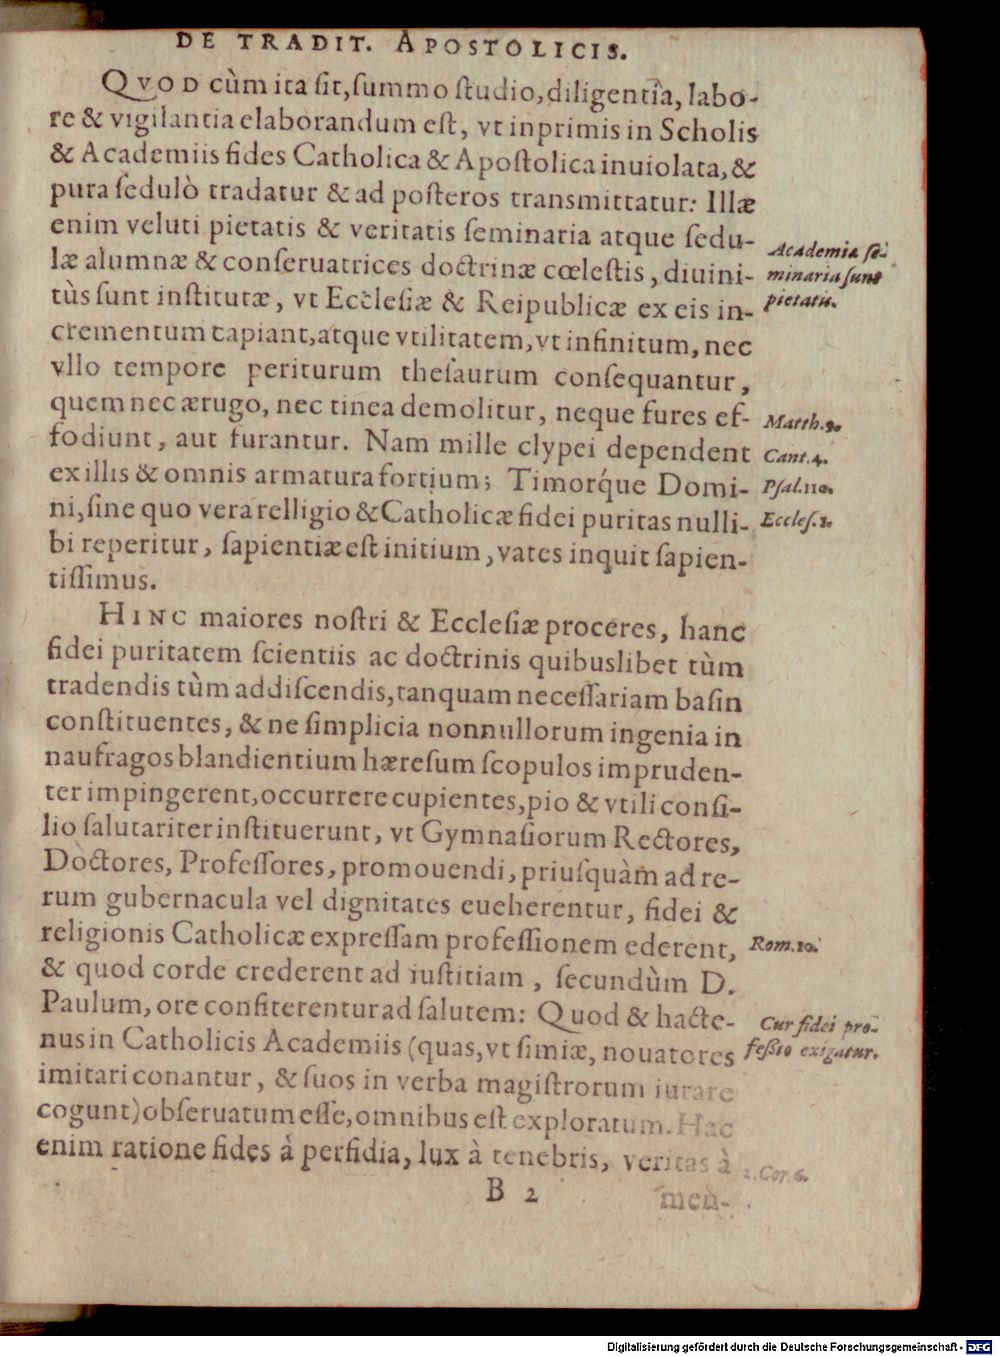 DE TRADIT. APOSTOLICIS.
QVOD cùm ita ſit, ſummo ſtudio, diligentia, labo-
re & vigilantia elaborandum eſt, vt inprimis in Scholis
& Academiis fides Catholica & Apoſtolica inuiolata, &
pura ſedulò tradatur & ad poſteros transmittatur: Illæ
enim veluti pietatis & veritatis ſeminaria atque ſedu-
læ alumnæ & conſeruatrices doctrinæ cœleſtis, diuini-
tùs ſunt inſtitutæ, vt Eccleſiæ & Reipublicæ ex eis in-
crementum capiant, atque vtilitatem, vt infinitum, nec
vllo tempore periturum theſaurum conſequantur,
quem nec ærugo, nec tinea demolitur, neque fures ef-
fodiunt, aut furantur. Nam mille clypei dependent
ex illis & omnis armatura fortium; Timorq́ue Domi-
ni, ſine quo vera relligio & Catholicæ fidei puritas nulli-
bi reperitur, ſapientiæ eſt initium, vates inquit ſapien-
tiſſimus.
Academiæ ſe-
minaria ſunt
pietatis.
Matth.
Cant. 4.
Pſal. 110.
Eccleſ. 1.
HINC maiores noſtri & Eccleſiæ proceres, hanc
fidei puritatem ſcientiis ac doctrinis quibuslibet tùm
tradendis tùm addiſcendis, tanquam neceſſariam baſin
conſtituentes, & ne ſimplicia nonnullorum ingenia in
naufragos blandientium hæreſum ſcopulos impruden-
ter impingerent, occurrere cupientes, pio & vtili conſi-
lio ſalutariter inſtituerunt, vt Gymnaſiorum Rectores,
Doctores, Profeſſores, promouendi, priuſquàm ad re-
rum gubernacula vel dignitates eueherentur, fidei &
religionis Catholicæ expreſſam profeſſionem ederent,
& quod corde crederent ad iuſtitiam, ſecundùm D.
Paulum, ore confiterentur ad ſalutem: Quod & hacte-
nus in Catholicis Academiis (quas, vt ſimiæ, nouatores
imitari conantur, & ſuos in verba magiſtrorum iurare
cogunt) obſeruatum eſſe, omnibus eſt exploratum. Hac
enim ratione fides à perfidia, lux à tenebris, veritas à
Rom. 10.
Cur fidei pro-
feßio exigatur.
2. Cor. 6.
B 2
men-
Digitalisierung gefördert durch die Deutsche Forschungsgemeinschaft - DFG